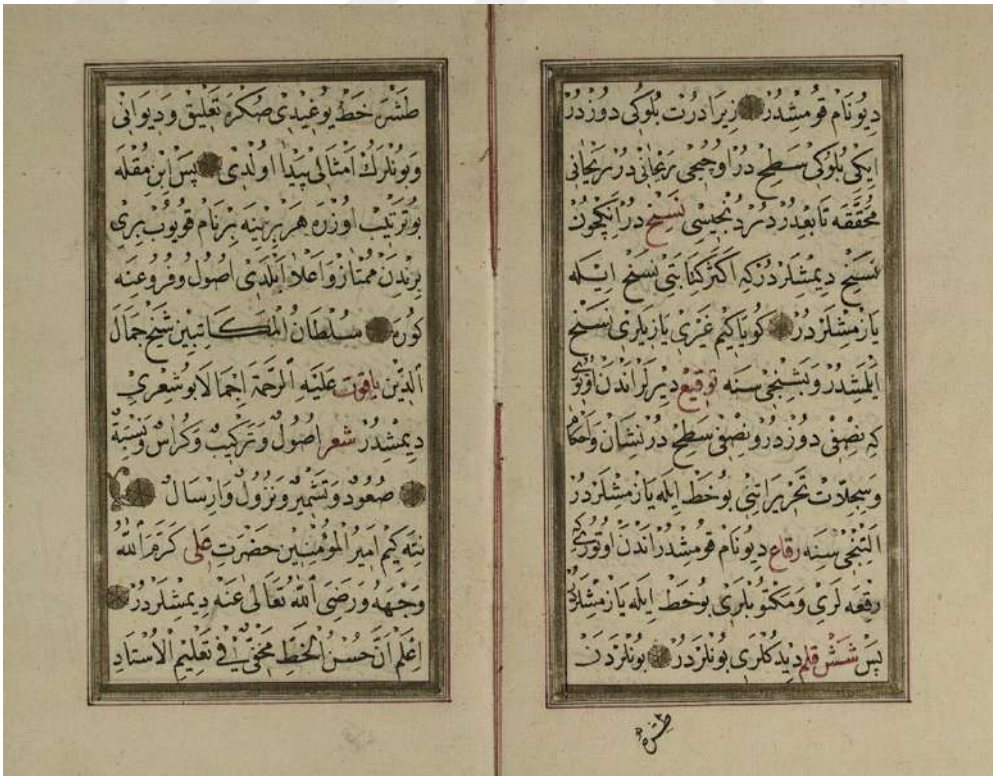 ديو نام قومشدر زيرا درت بلوكى دوزدر
ايكى بلوكى سطح در اوچنجى ريحانى در ريحانى
محققه تابعدر دردنجيسى نسخ در انيكچون
نسخ ديمشلردر كه اكثر كتابتى نسخ ايله
يازمشلردر كويا كيم غيرى يازيلرى نسخ
ايلمشدر وبشنجى سنه توقيع ديرلر اندن اوتورى
كه نصفى دوزدر ونصفى سطح در نشان واحكام
وسجلات تحريراتنى بو خط ايله يازمشلردر
التنجى سنه رقاع ديو نام قومشدر اندن اوتورى كه
رقعه لرى ومكتوبلرى بو خط ايله يازمشلردر
پس شش قلم ديدكلرى بونلردر بونلردن
طشره
طشره خط يوغيدى صكره تعليق وديوانى
وبونلرك امثالى پيدا اولدى پس ابن مقله
بو ترتيب اوزره هر برينه بر نام قويوب برى
برندن ممتاز واعلا ايلدى اصول وفروعنه
كوره سلطان المكاتبين شيخ جمال
الدين ياقوت عليه الرحمة اجمالا بو شعرى
ديمشدر شعر اصول وتركيب وكراس ونسبة
صعود وتشمير ونزول وارسال
نته كيم امير المؤمنين حضرت على كرم الله
وجهه ورضى الله تعالى عنه ديمشلردر
اعلم ان حسن الخط مخفى فى تعليم الاستاد